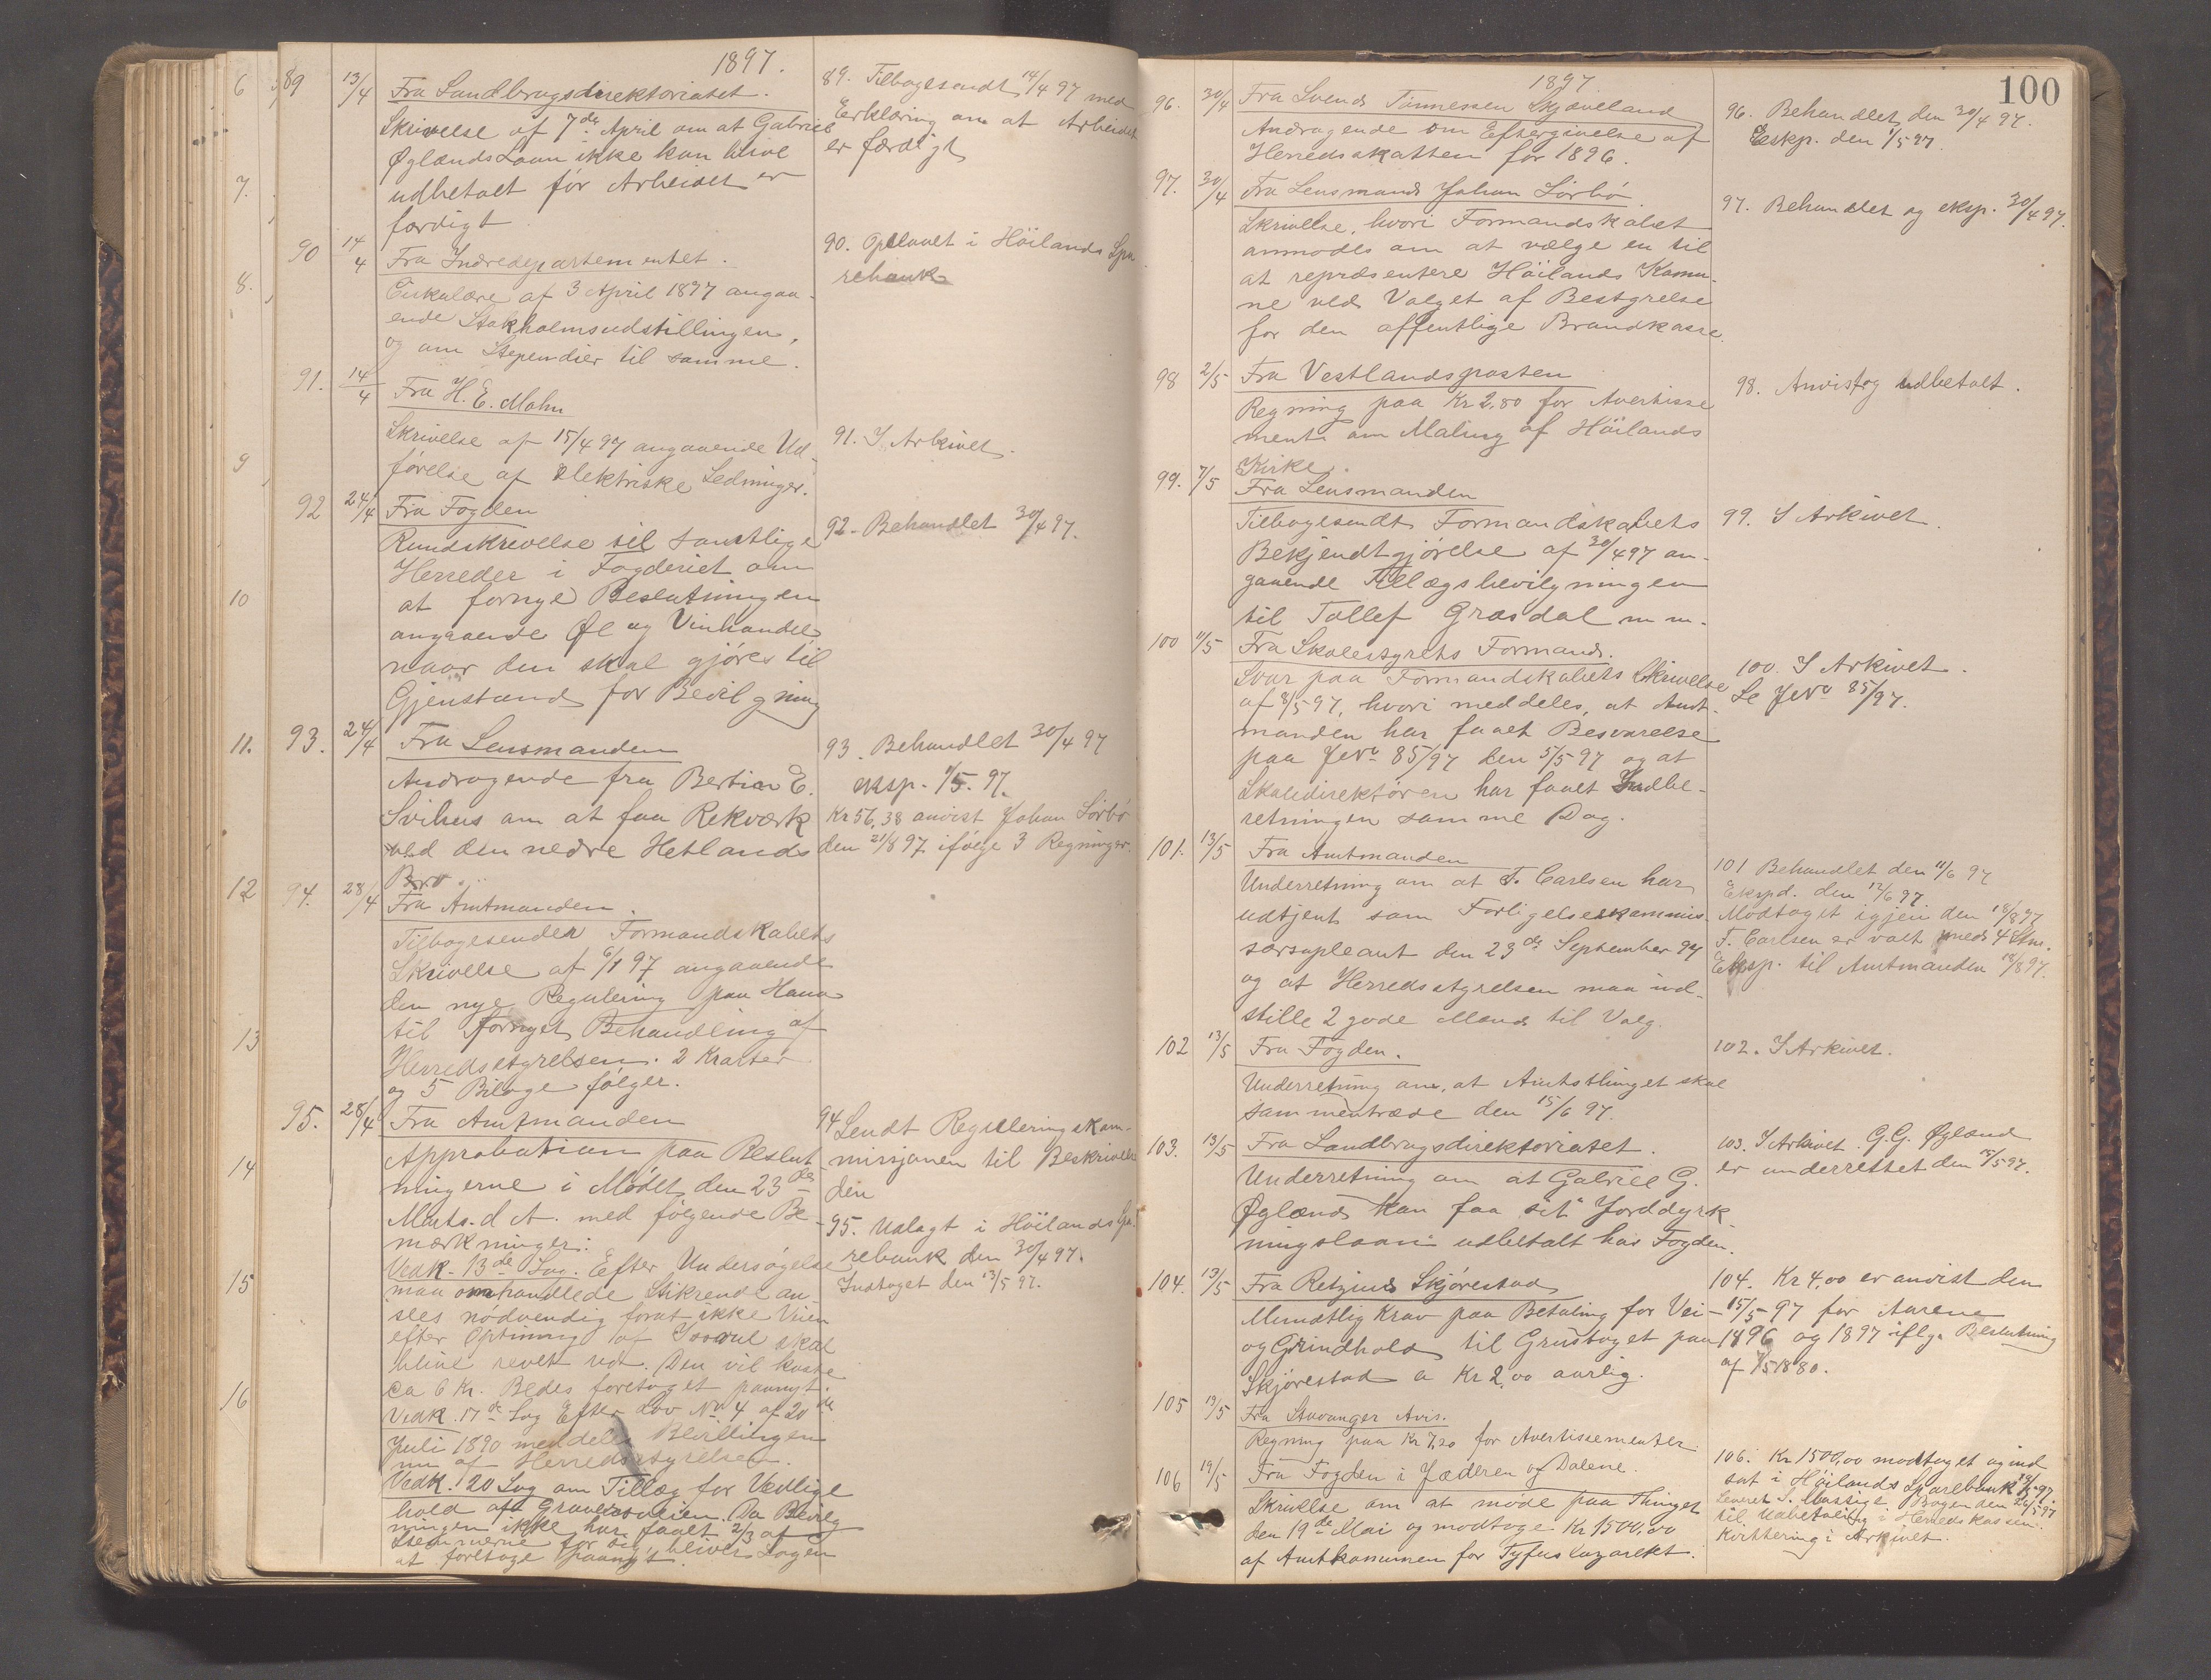 1897.
89 13/4 Fra Landbrugsdirektoriatet.
Skrivelse af 7de April om at Gabriel
Øglænds Laan ikke kan blive
udbetalt før Arbeidet er
færdigt
89. Tilbagesendt 14/4 97 med
Erklæring om at Arbeidet
er færdigt
90 14/4 Fra Indredepartementet.
Cirkulære af 3 April 1897 angaa-
ende Stokholmsudstillingen,
og om Stipendier til samme.
90. Opslaaet i Höilands Spa
rebank
91. 14/4 Fra H. E. Mohn
Skrivelse af 15/4 97 angaaende Ud-
førelse af elektriske Ledninger.
91. I Arkivet.
92 24/4 Fra Fogden
Rundskrivelse til samtlige
Herreder i Fogderiet om
at fornye Beslutningen
angaaende Øl og Vinhandel,
naar den skal gjøres til
Gjenstand for Bevilgning
92. Behandlet 30/4 97.
93. 24/4 Fra Lensmanden
Andragende fra Bertin E.
Svihus om at faa Rekværk
ved den nedre Hetlands
Bro.
93. Behandlet 30/4 97
eksp. 1/5. 97.
Kr 56,38 anvist Johan Sörbö
den 21/8 97 ifølge 3 Regninger.
94. 28/4 Fra Amtmanden.
Tilbagesender Formandskabets
Skrivelse af 6/1 97 angaaende
den nye Regulering paa Hana
til fornyet Behandling af
Herredsstyrelsen. 2 Karter
og 5 Bilage følger.
95. 28/4 Fra Amtmanden
Approbation paa Beslut
ningerne i Mödet den 23de
Marts d. A. med følgende Be-
mærkninger:
94 Sendt Reguleringskom-
missjonen til Beskrivelse
den
95. Udlagt i Höilands Spa
rebank den 30/4 97.
Indtaget den 13/5 97.
Vedk. 13de Sag. Efter Undersøgelse
maa omhandlede Stikrende an
sees nødvendig forat ikke Veien
efter Optining af skal
blive revet ud. Den vil koste
ca 6 Kr. Bedes foretaget paanyt.
Vedk. 17de Sag Efter Lov No 4 af 20de
Juli 1890 meddeles Bevillingen
nu af Herredsstyrelsen.
Vedk. 20 Sag om Tillæg for Vedlige
hold af Graveveien. Da Bevilg
ningen ikke har faaet 2/3 af
Stemmerne for sig, bliver Sagen
at foretage paanyt.
6
7.
8.
9
10
11.
12
13
14
15
16
100
1897
96. 30/4 Fra Svend Tönnessen Skjæveland
Andragende om Eftergivelse af
Herredsskatten for 1896.
96. Behandlet den 30/4 97.
Eksp. den 1/5 97.
97. 30/4 Fra Lensmand Johan Sörbö.
Skrivelse, hvori Formandskabet
anmodes om at vælge en til
at repræsentere Höilands Komu-
ne ved Valget af Bestyrelse
for den offentlige Brandkasse.
97. Behandlet og eksp. 30/4 97.
98 2/5 Fra Vestlandsposten
Regning paa Kr 2,80 for Avertisse
ment om Maling af Höilands
Kirke.
98. Anvist og udbetalt.
99. 7/5 Fra Lensmanden
Tilbagesendt Formandskabets
Bekjendtgjørelse af 30/4 97 an-
gaaende Tillægsbevilgningen
til Tollef Grasdal m m.
99. I Arkivet.
100 11/5 Fra Skolestyrets Formand.
Svar paa Formandskabets Skrivelse
af 8/5 97, hvori meddeles, at Amt-
manden har faaet Besvarelse
paa JNo 85/97 den 5/5 97 og at
Skoledirektøren har faaet Indbe-
retningen samme Dag.
100. I Arkivet.
Se JNo 85/97.
101. 13/5 Fra Amtmanden
Underretning om at T. Carlsen har
udtjent som Forligelseskommis
særsupleant den 23de September 97
og at Herredsstyrelsen maa ind-
stille 2 gode Mænd til Valg.
101 Behandlet den 11/6 97
Ekspd. den 12/6 97.
Modtaget igjen den 18/8 97
T. Carlsen er valt med 4 Stm.
Eksp. til Amtmanden 18/8 97.
102 13/5 Fra Fogden.
Underretning om, at Amtsthinget skal
sammentræde den 15/6 97.
102. I Arkivet.
103. 13/5 Fra Landbrugsdirektoriatet.
Underretning om at Gabriel G.
Øglænd kan faa sit Jorddyrk-
ningslaan udbetalt hos Fogden.
103. I Arkivet. G. G. Øglænd
er underrettet den 15/5 97.
104. 13/5 Fra Retzius Skjørestad
Mundtlig Krav paa Betaling for Vei-
og Grindhold til Grustaget paa
Skjørestad a Kr 2,00 aarlig.
104. Kr 4,00 er anvist den
15/5 97 for Aarene
1896 og 1897 iflg. Beslutning
af 7/5 1880.
105 13/5 Fra Stavanger Avis.
Regning paa Kr 7,20 for Avertissementer
106 19/5 Fra Fogden i Jæderen og Dalene.
Skrivelse om at møde paa Thinget
den 19de Mai og modtage Kr 1500,00
af Amtkommunen for Tyfuslazarekt.
106. Kr 1500,00 modtaget og ind
sat i Höilands Sparebank 19/5 97.
Leveret Bogen den 26/5 97
til Udbetaling i Herredskassen.
Kvittering i Arkivet.